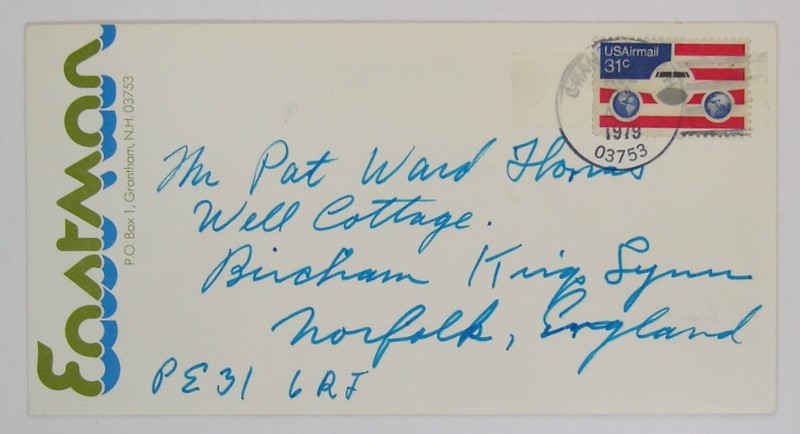 Eastman
P.O. Box 1, Grantham, N.H. 03753
USAirmail
31c
1979
03753
Mr Pat Ward Thomas
Well Cottage.
Bircham Kings Lynn
Norfolk, England
PE31 6RJ